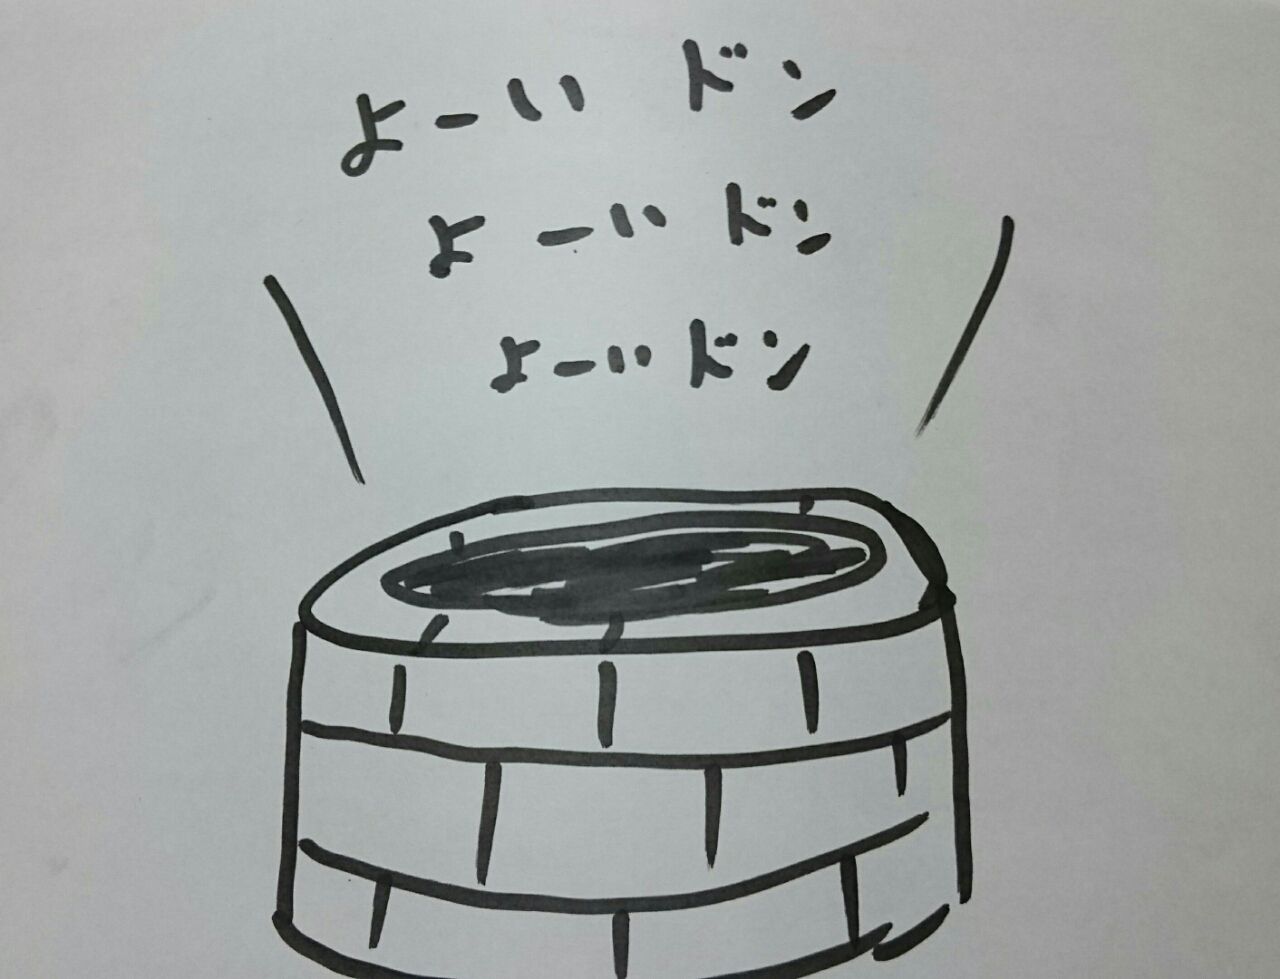 よーい ドン
よーい ドン
よーい ドン